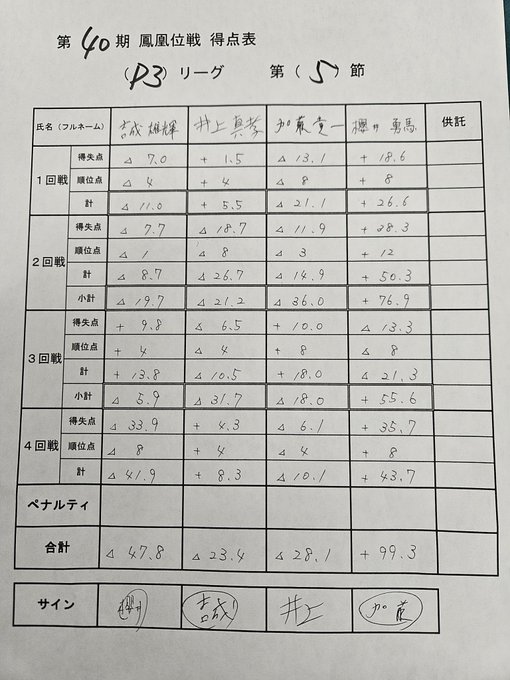 第 40 期 鳳凰位戦 得点表
(P3) リーグ 第 (5) 節
氏名 (フルネーム) 吉成 雄輝 井上 真孝 加藤 寛一 櫻井 勇馬 供託
1回戦 得失点 △ 7.0 + 1.5 △ 13.1 + 18.6
順位点 △ 4 + 4 △ 8 + 8
計 △ 11.0 + 5.5 △ 21.1 + 26.6
2回戦 得失点 △ 7.7 △ 18.7 △ 11.9 + 38.3
順位点 △ 1 △ 8 △ 3 + 12
計 △ 8.7 △ 26.7 △ 14.9 + 50.3
小計 △ 19.7 △ 21.2 △ 36.0 + 76.9
3回戦 得失点 + 9.8 △ 6.5 + 10.0 △ 13.3
順位点 + 4 △ 4 + 8 △ 8
計 + 13.8 △ 10.5 + 18.0 △ 21.3
小計 △ 5.9 △ 31.7 △ 18.0 + 55.6
4回戦 得失点 △ 33.9 + 4.3 △ 6.1 + 35.7
順位点 △ 8 + 4 △ 4 + 8
計 △ 41.9 + 8.3 △ 10.1 + 43.7
ペナルティ
合計 △ 47.8 △ 23.4 △ 28.1 + 99.3
サイン 吉成 井上 加藤